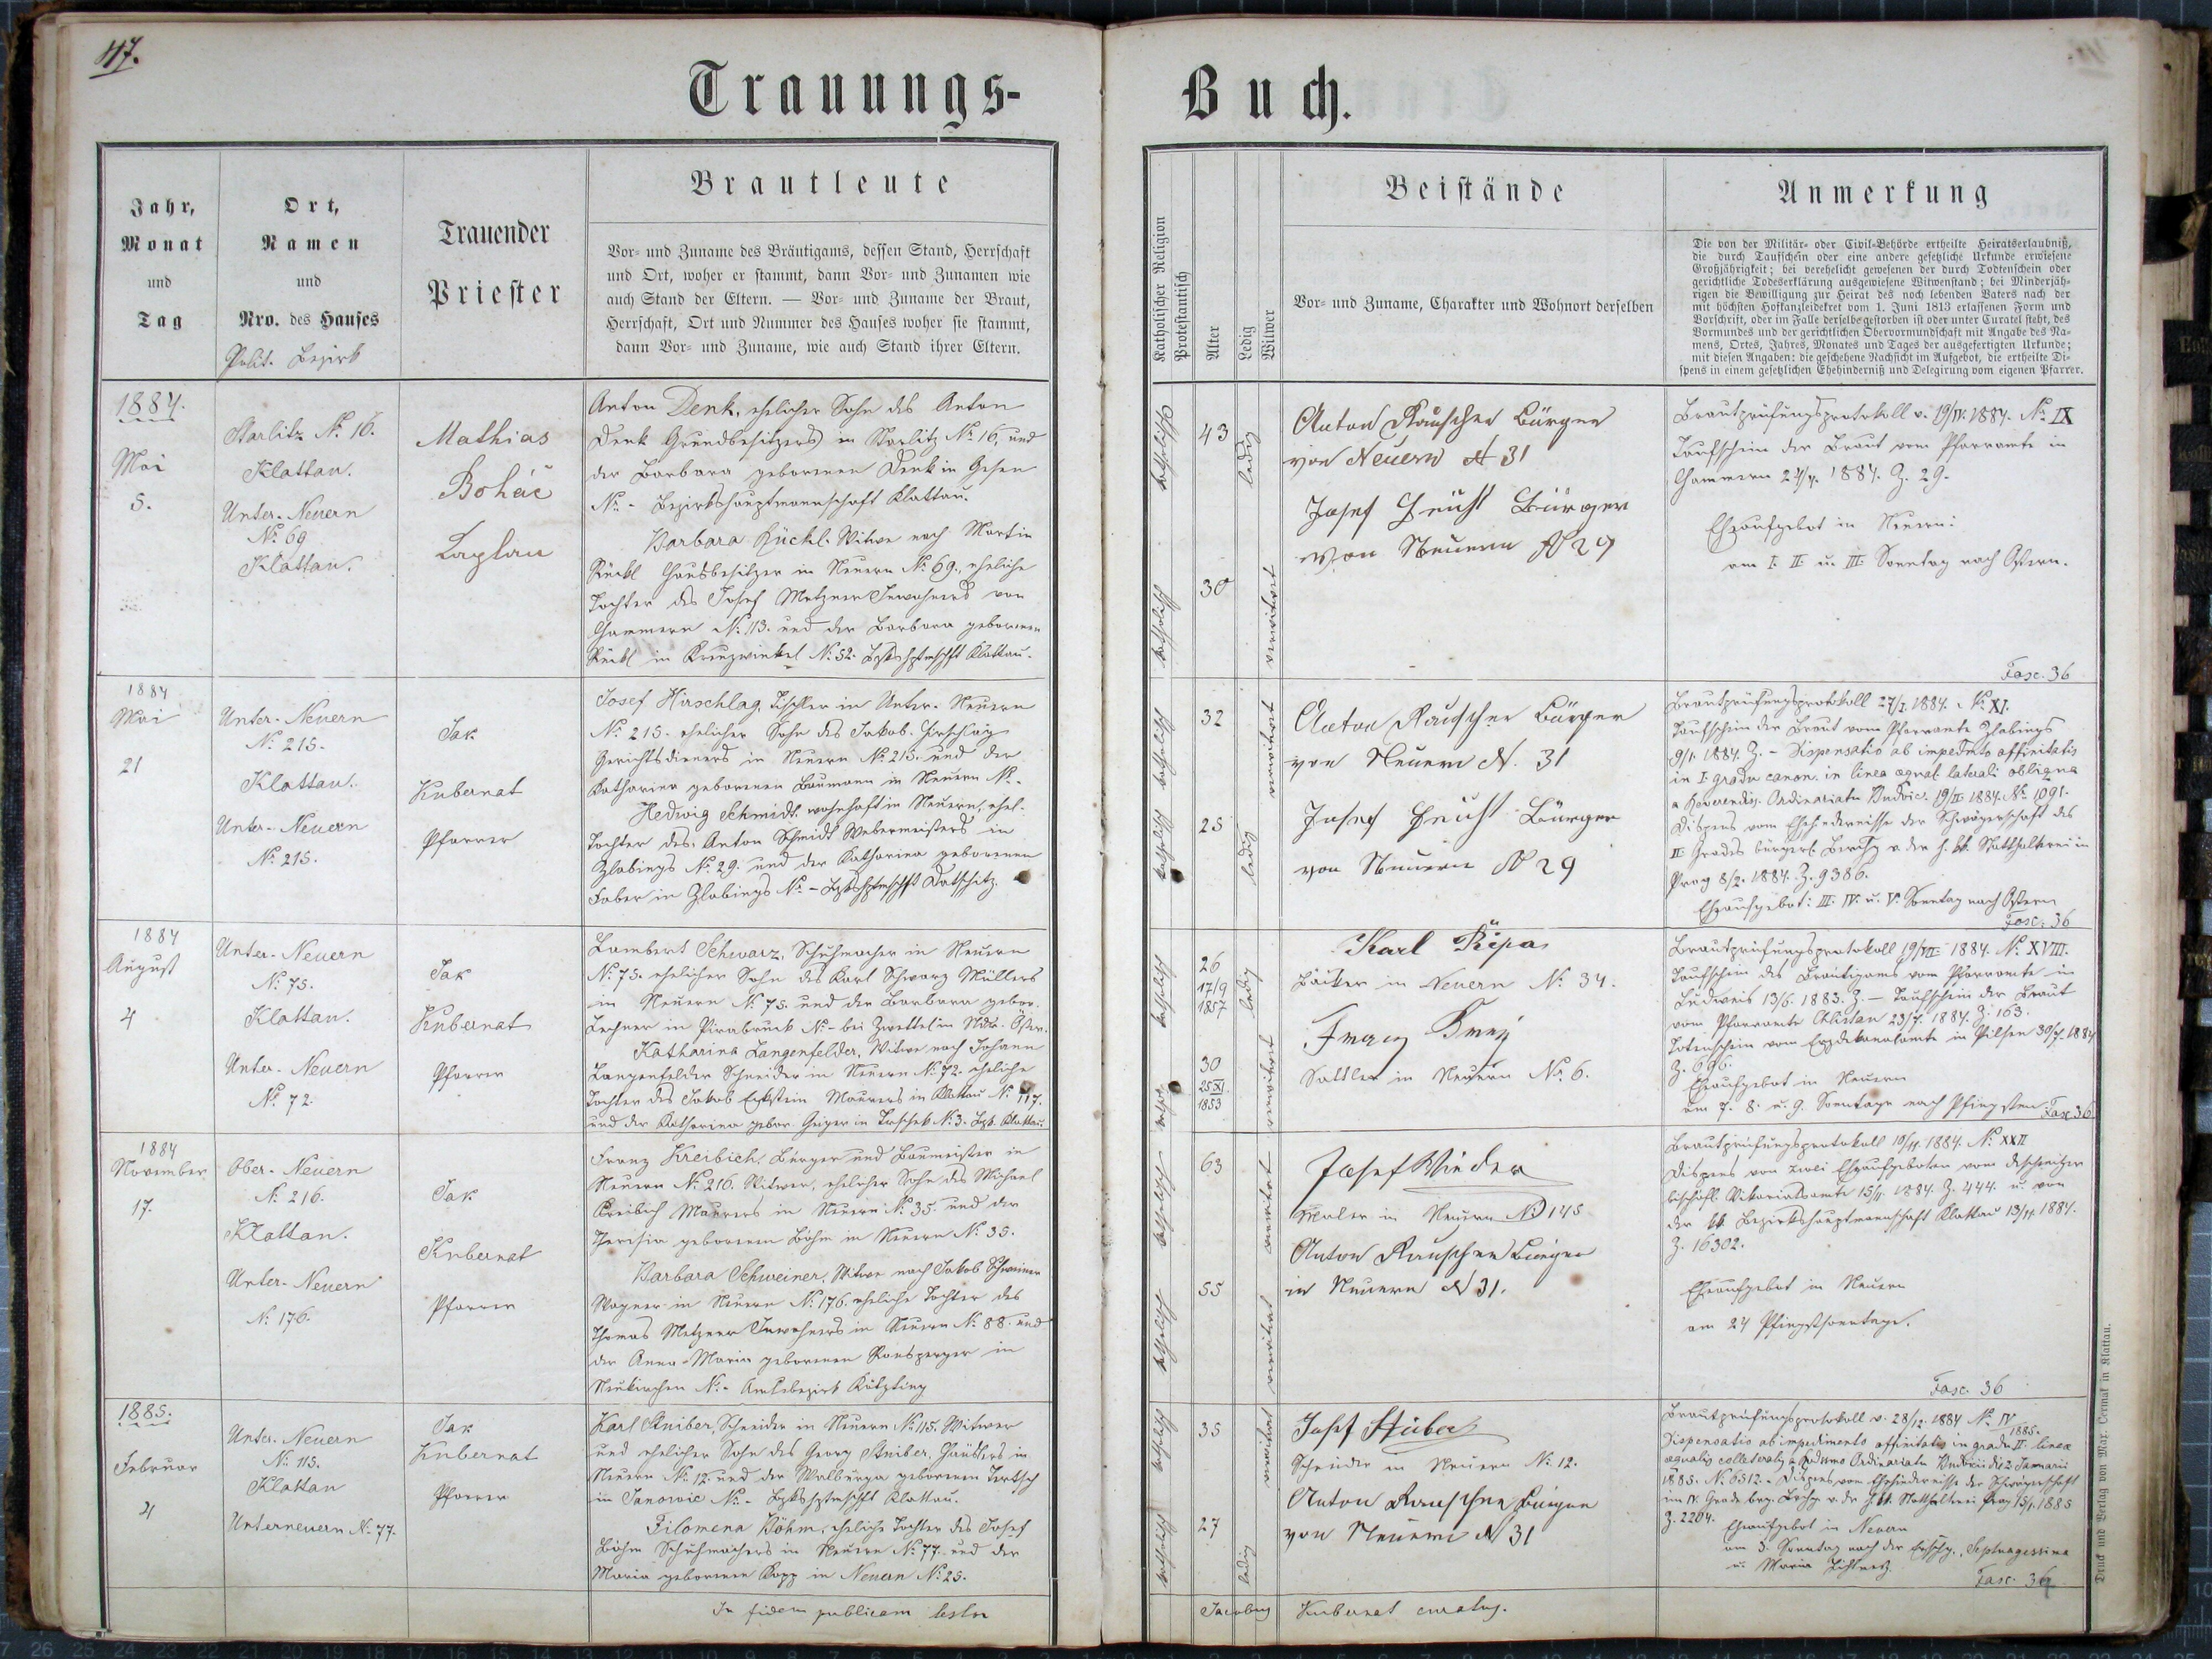 47.
Trauungs-
Jahr,
Monat
und
Tag
Ort,
Namen
und
Nro. des Hauses
Polit. Bezirk
Trauender
Priester
Brautleute
Vor- und Zuname des Bräutigams, dessen Stand, Herrschaft
und Ort, woher er stammt, dann Vor- und Zunamen wie
auch Stand der Eltern. — Vor- und Zuname der Braut,
Herrschaft, Ort und Nummer des Hauses woher sie stammt,
dann Vor- und Zuname, wie auch Stand ihrer Eltern.
1884.
Mai
5.
Starlitz No. 16.
Klattau.
Unter-Neuern
No. 69
Klattau.
Mathias
Boháč
Kaplan
Anton Denk, ehelicher Sohn des Anton
Denk Grundbesitzers in Starlitz No. 16, und
der Barbara geborenen Denk in
No. - Bezirkshauptmannschaft Klattau.
Barbara Rückl. Witwe nach Martin
Rückl Hausbesitzer in Neuern No. 69., eheliche
Tochter des Josef Metzner Inwohners von
Hammern No. 113. und der Barbara geborenen
Rückl in Kreuzwinkel No. 52. Bzkshptmschft Klattau.
1884
Mai
21
Unter-Neuern
No. 215.
Klattau.
Unter-Neuern
No. 215.
Jak
Kubernat
Pfarrer
Josef Hirschlag, Tischler in Unter-Neuern
No. 215. ehelicher Sohn des Jakob Hirschlag
Gerichtsdieners in Neuern No. 215. und der
Katharina geborenen Baumann in Neuern No. -
Hedwig Schmidt. wohnhaft in Neuern, ehel.
Tochter des Anton Schmidt Webermeisters in
Zlabings No. 29. und der Katharina geborenen
Faber in Zlabings No. - Bzkshptmschft Datschitz.
1884
August
4
Unter-Neuern
No. 75.
Klattau.
Unter-Neuern
No. 72.
Jak
Kubernat
Pfarrer
Lambert Schwarz, Schuhmacher in Neuern
No. 75. ehelicher Sohn des Karl Schwarz Müllers
in Neuern No. 75. und der Barbara gebor.
Lechner in Pirabruck No. - bei Zwettel in Ndr. Öster.
Katharina Langenfelder, Witwe nach Johann
Langenfelder Schneider in Neuern No. 72. eheliche
Tochter des Jakob Eckstein Maurers in Klattau No. 117.
und der Katharina gebor. Geiger in No. 3. Bzk. Klattau.
1884
November
17.
Ober-Neuern
No. 216.
Klattau.
Unter-Neuern
No. 176.
Jak
Kubernat
Pfarrer
Franz Kreibich, Bürger und Baumeister in
Neuern No. 216. Witwer, ehelicher Sohn des Michael
Kreibich Maurers in Neuern No. 35. und der
Theresia geborenen Böhm in Neuern No. 35.
Barbara Schweiner, Witwe nach Jakob Schweiner
Wagner in Neuern No. 176. eheliche Tochter des
Thomas Metzner Inwohners in Neuern No. 88. und
der Anna-Maria geborenen Ransperger in
Neukirchen No. - Amtsbezirk Kötzting
1885.
Februar
4
Unter-Neuern
No. 115.
Klattau
Unterneuern No. 77.
Jak
Kubernat
Pfarrer
Karl Stuiber, Schneider in Neuern No. 115. Witwer
und ehelicher Sohn des Georg Stuiber, Häuslers in
Neuern No. 12. und der Walburga geborenen
in Janowic No. - Bzkshptmschft Klattau.
Filomena Böhm, eheliche Tochter des Josef
Böhm Schuhmachers in Neuern No. 77. und der
Maria geborenen Kopp in Neuern No. 25.
In fidem publicam testor
Buch.
Katholischer Religion
Protestantisch
Alter
Ledig
Witwer
Beistände
Vor- und Zuname, Charakter und Wohnort derselben
Anmerkung
Die von der Militär- oder Civil-Behörde ertheilte Heiratserlaubniß,
die durch Taufschein oder eine andere gesetzliche Urkunde erwiesene
Großjährigkeit; bei verehelicht gewesenen der durch Todtenschein oder
gerichtliche Todeserklärung ausgewiesene Witwenstand; bei Minderjäh-
rigen die Bewilligung zur Heirat des noch lebenden Vaters nach der
mit höchsten Hofkanzleidekret vom 1. Juni 1813 erlassenen Form und
Vorschrift, oder im Falle derselbe gestorben ist oder unter Curatel steht, des
Vormundes und der gerichtlichen Obervormundschaft mit Angabe des Na-
mens, Ortes, Jahres, Monates und Tages der ausgefertigten Urkunde;
mit diesen Angaben: die geschehene Nachsicht im Aufgebot, die ertheilte Di-
spens in einem gesetzlichen Ehehinderniß und Delegirung vom eigenen Pfarrer.
katholisch
43
ledig
katholisch
30
verwitwet
Anton Rauscher Bürger
von Neuern No 31
Josef Feicht Bürger
von Neuern No 29
Brautprüfungsprotokoll v. 19/IV. 1884. No. IX
Taufschein der Braut vom Pfarramte in
Hammern 24/4. 1884. Z. 29.
Eheaufgebot in Neuern:
am I. II. u. III. Sonntag nach Ostern.
Fasc. 36
katholisch
32
verwitwet
katholisch
25
ledig
Anton Rauscher Bürger
von Neuern N. 31
Josef Feicht Bürger
von Neuern No 29
Brautprüfungsprotokoll 27/1. 1884. No. XI.
Taufschein der Braut vom Pfarramte Zlabings
9/1. 1884. Z. - Dispensatio ab impedmto affinitatis
in I. gradu canon. in linea aequal. laterali obliqua
a Reverendis. Ordinariatu Budvic. 19/II 1884. No. 1091.
Dispens vom Ehehindernisse der Schwägerschaft des
II. Grades bürgerl. Berchg v. der h. kk. Statthalterei in
Prag 8/2. 1884. Z. 9386.
Eheaufgebot: III. IV. u. V. Sonntag nach Ostern
Fasc. 36
katholisch
26
17/9
1857
ledig
kathol.
30
25/XI.
1853
verwitwet
Karl Řipa
Bäcker in Neuern No. 34.
Franz
Sattler in Neuern No. 6.
Brautprüfungsprotokoll 19/VII 1884. No. XVIII.
Taufschein des Bräutigams vom Pfarramte in
Budweis 13/6. 1883. Z. — Taufschein der Braut
vom Pfarramte 23/7. 1884. Z. 163.
Totenschein vom Erzdekanalamte in Pilsen 30/7. 1884
Z. 696.
Eheaufgebot in Neuern
am 7. 8. u. 9. Sonntage nach Pfingsten. Fasc 36
katholisch
63
verwitwet
katholisch
55
verwitwet
Josef Wieder
Maler in Neuern No 145
Anton Rauscher Bürger
in Neuern No 31.
Brautprüfungsprotokoll 10/11. 1884. No. XXII
Dispens von zwei Eheaufgeboten vom
bischöfl. Vikariatsamte 15/11. 1884. Z. 444. u. von
der kk. Bezirkshauptmannschaft Klattau 13/11. 1884.
Z. 16302.
Eheaufgebot in Neuern
am 24 Pfingstsonntage.
Fasc. 36
katholisch
35
verwitwet
katholisch
27
ledig
Josef Stuiber
Schneider in Neuern No. 12.
Anton Rauscher Bürger
von Neuern No 31
Brautprüfungsprotokoll v. 28/12. 1884 No. IV/1885.
Dispensatio ab impedimento affinitatis in gradu II. lineae
aequalis collateralis a Rvdsmo Ordinariatu Budvicii die 2 Januarii
1885. No. 6512. Dispens vom Ehehindernisse der Schwägerschaft
im IV. Grade brg. Brchg v. dr h. kk. Statthalterei Prag 15/1. 1885
Z. 2204.
Eheaufgebot in Neuern
am 3. Sonntag nach der Erschg., Septuagesima
u. Maria Lichtmeß.
Fasc. 36
Jacobus Kubernat curatus.
Druck und Verlag von Max. Čermak in Klattau.